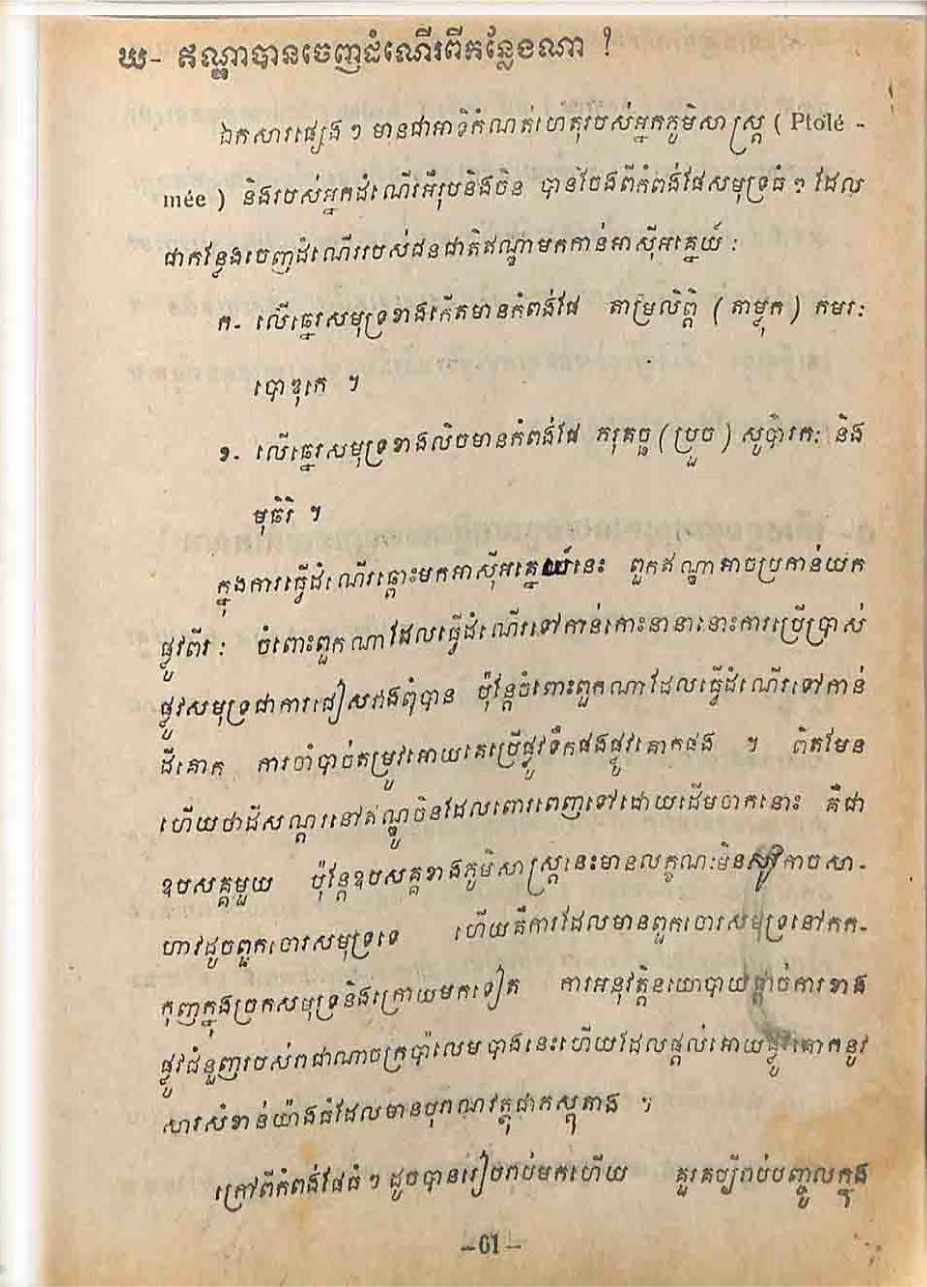 ឃ- ឥណ្ឌាបានចេញដំណើរពីកន្លែងណា ?
ឯកសារផ្សេង ៗ មានជាអាទិ៍កំណត់ហេតុរបស់អ្នកភូមិសាស្ត្រ ( Ptolé -
mée ) និងរបស់អ្នកដំណើរអឺរុបនិងចិន បានចែងពីកំពង់ផែសមុទ្រធំ ៗ ដែល
ជាកន្លែងចេញដំណើររបស់ជនជាតិឥណ្ឌាមកកាន់អាស៊ីអគ្នេយ៍ :
ក- លើឆ្នេរសមុទ្រខាងកើតមានកំពង់ផែ តាម្រលិត្តិ ( តាម្លុក ) កមរ:
បោឌុកេ ។
ខ- លើឆ្នេរសមុទ្រខាងលិចមានកំពង់ផែ ភរុគច្ឆ ( ប្រួច ) សូប៉ារក: និង
មុធិរិ ។
ក្នុងការធ្វើដំណើរឆ្ពោះមកអាស៊ីអគ្នេយ៍នេះ ពួកឥណ្ឌាអាចប្រកាន់យក
ផ្លូវពីរ : ចំពោះពួកណាដែលធ្វើដំណើរទៅកាន់កោះនានានោះការប្រើប្រាស់
ផ្លូវសមុទ្រជាការជៀសវាងពុំបាន ប៉ុន្តែចំពោះពួកណាដែលធ្វើដំណើរទៅកាន់
ដីគោក ការចាំបាច់តម្រូវអោយគេប្រើផ្លូវទឹកផងផ្លូវគោកផង ។ ពិតមែន
ហើយថាដីសណ្ដរនៅឥណ្ឌូចិនដែលពោរពេញទៅដោយដើមចាកនោះ គឺជា
ឧបសគ្គមួយ ប៉ុន្តែឧបសគ្គខាងភូមិសាស្ត្រនេះមានលក្ខណៈមិនសូវកាចសា-
ហាវដូចពួកចោរសមុទ្រទេ ហើយគឺការដែលមានពួកចោរសមុទ្រនៅកក-
កុញក្នុងច្រកសមុទ្រនិងក្រោយមកទៀត ការអនុវត្តិនយោបាយផ្ដាច់ការខាង
ផ្លូវជំនួញរបស់រាជាណាចក្រប៉ាលេមបាងនេះហើយដែលផ្ដល់អោយផ្លូវគោកនូវ
សារសំខាន់យ៉ាងធំដែលមានបុរាណវត្ថុជាភស្ដុតាង ។
ក្រៅពីកំពង់ផែធំ ៗ ដូចបានរៀបរាប់មកហើយ គួរគប្បីរាប់បញ្ចូលក្នុង
-61-